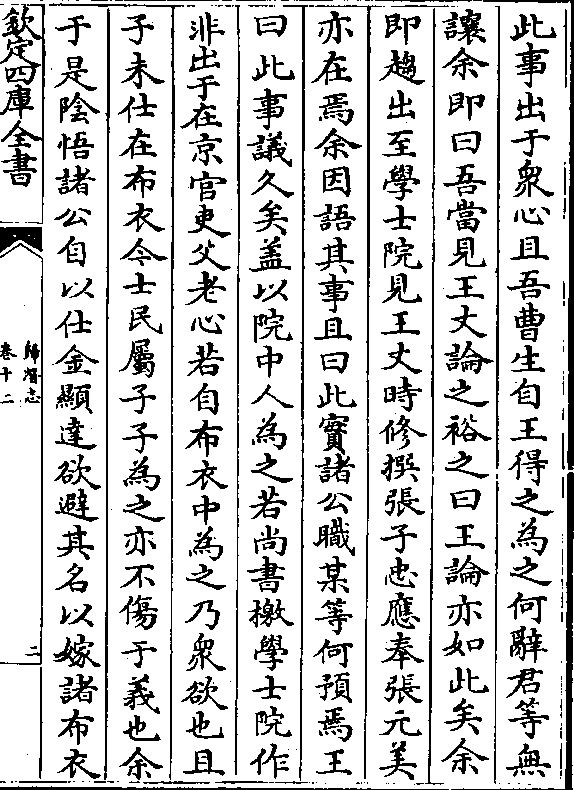 此事出于衆心且吾曹生自王得之為之何辭君等無
讓余即曰吾當見王丈論之裕之曰王論亦如此矣余
即趨出至學士院見王丈時修撰張子忠應奉張元美
亦在焉余因語其事且曰此實諸公職某等何預焉王
曰此事議久矣盖以院中人為之若尚書檄學士院作
非出于在京官吏父老心若自布衣中為之乃衆欲也且
子未仕在布衣今士民屬子子為之亦不傷于義也余
于是陰悟諸公自以仕金顯達欲避其名以嫁諸布衣
欽定四庫全書
歸潛志
卷十二
二